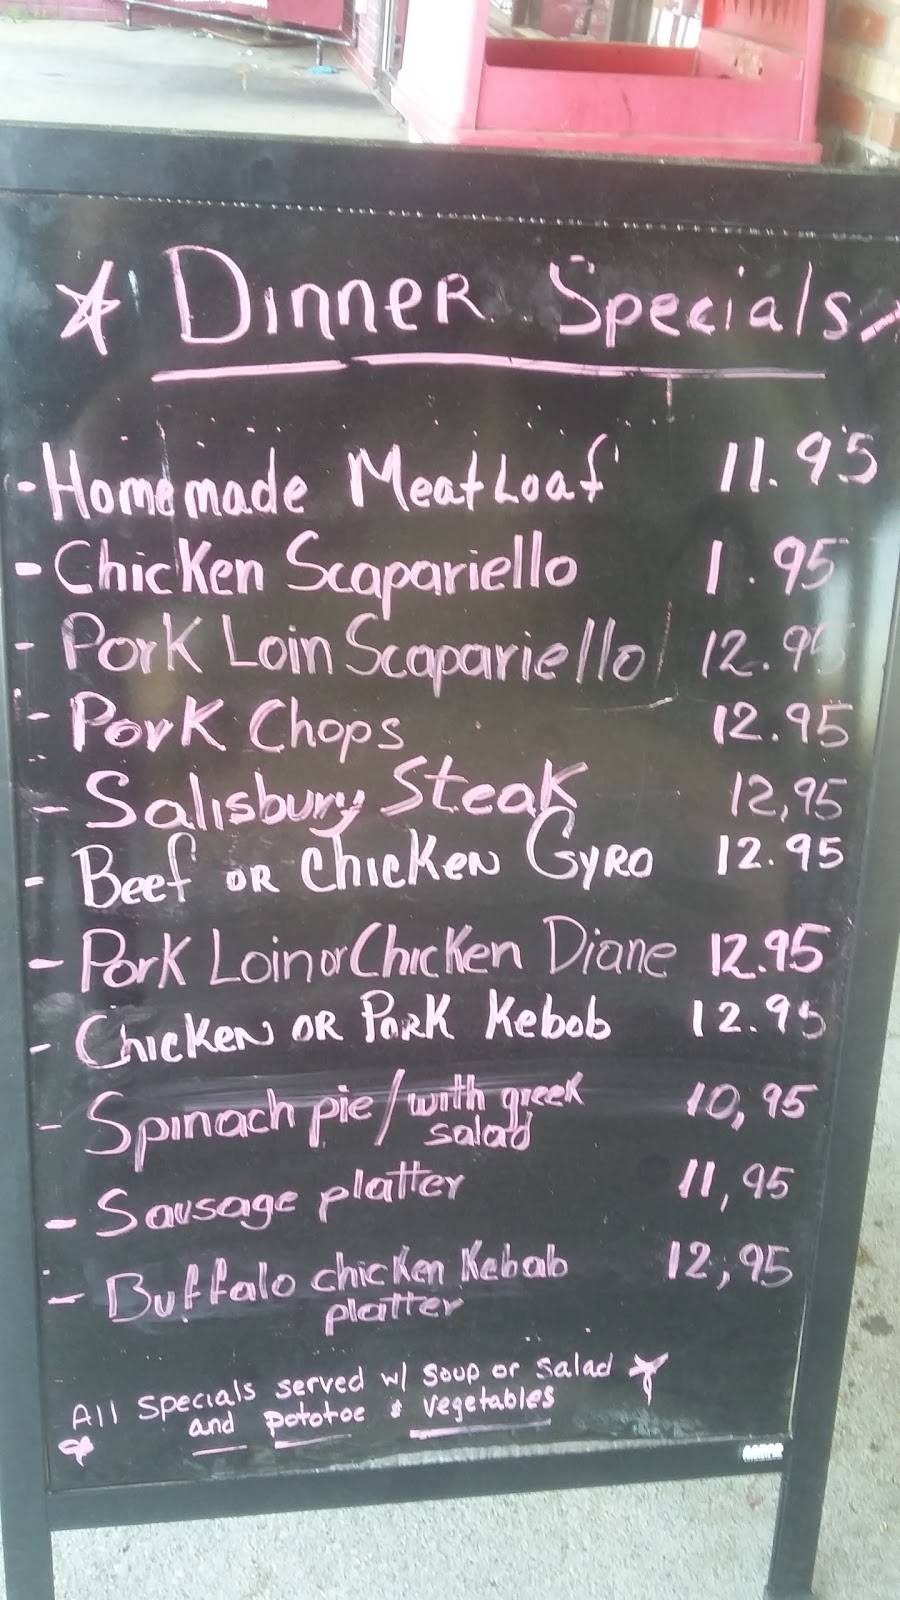 Dinner Specials
- Homemade Meat Loaf 11.95
- Chicken Scapariello 1.95
- Pork Loin Scapariello 12.95
- Pork Chops 12.95
- Salisbury Steak 12,95
- Beef or Chicken Gyro 12.95
- Pork Loin or Chicken Diane 12.95
- Chicken or Pork Kebob 12.95
- Spinach pie/with greek 10,95
salad
- Sausage platter 11,95
- Buffalo chicken Kebab 12,95
platter
All specials served w/ soup or salad
and pototoe & vegetables